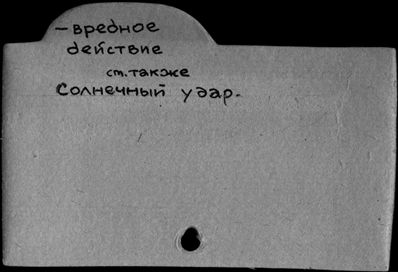 — вредное
действие
см. также
Солнечный удар.